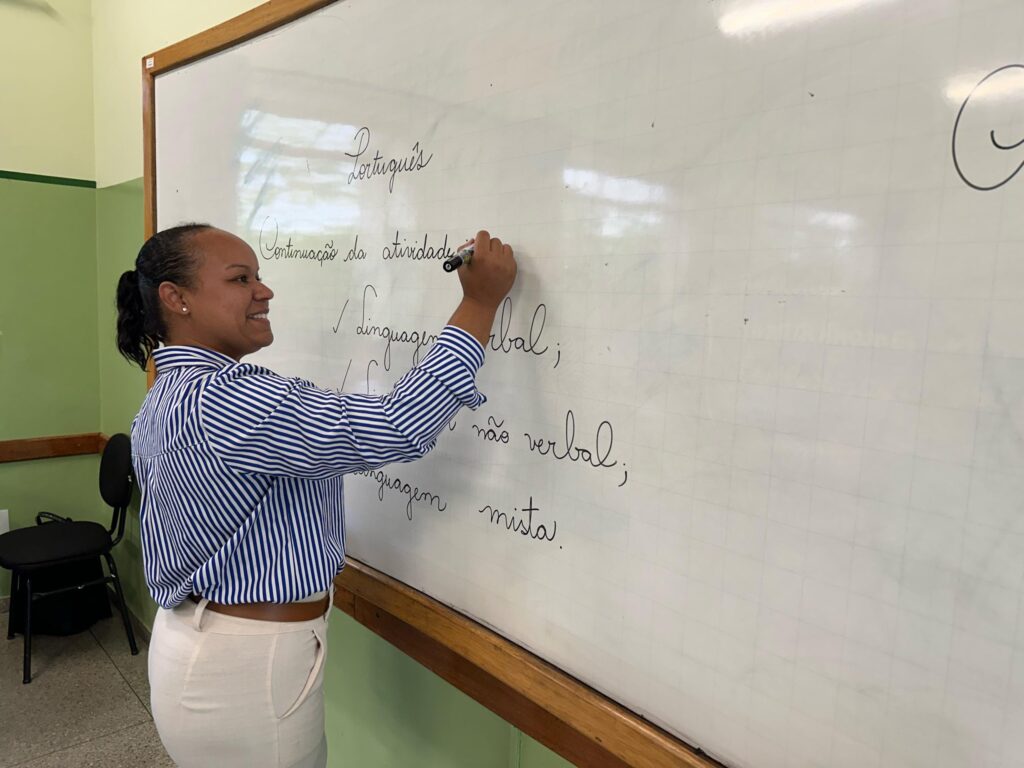 Português
Continuação da atividade
✓ Linguagem verbal;
✓ não verbal;
Linguagem mista.